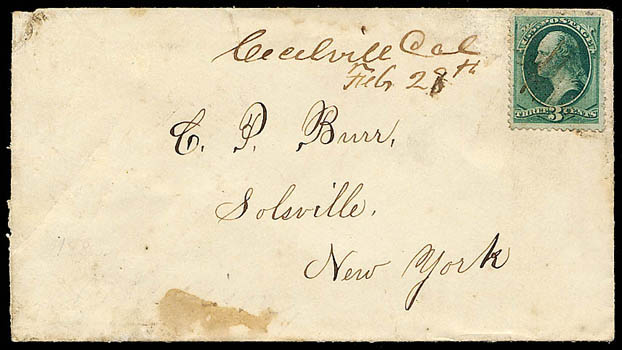 Cecilville Cal
Feb 28th
U.S. POSTAGE
THREE 3 CENTS
C. P. Burr,
Solsville,
New York